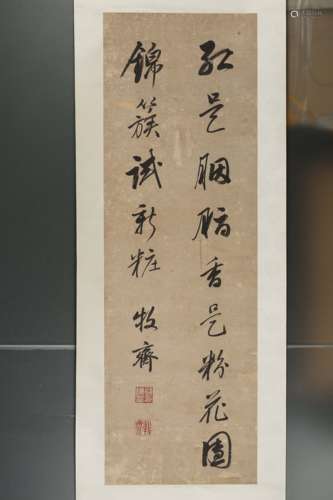 紅是胭脂香是粉花團
錦簇試新粧 牧齋